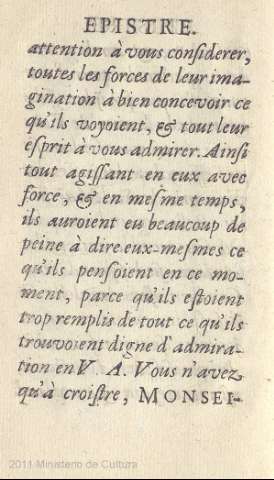 EPISTRE.
attention à vous considerer,
toutes les forces de leur ima-
gination à bien concevoir ce
qu'ils voyoient, & tout leur
esprit à vous admirer. Ainsi
tout agissant en eux avec
force, & en mesme temps,
ils auroient eu beaucoup de
peine à dire eux-mesmes ce
qu'ils pensoient en ce mo-
ment, parce qu'ils estoient
trop remplis de tout ce qu'ils
trouvoient digne d'admira-
tion en V. A. Vous n'avez
qu'à croistre, MONSEI-
2011 Ministerio de Cultura